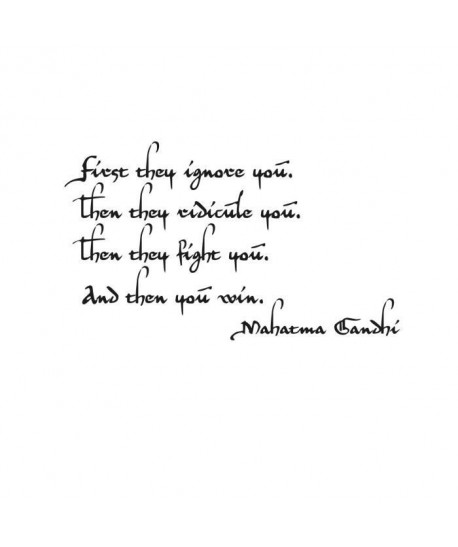 First they ignore you.
Then they ridicule you.
Then they fight you.
And then you win.
Mahatma Gandhi